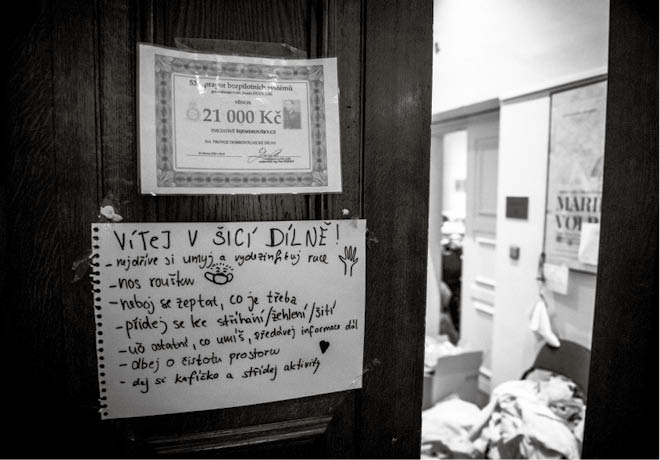 533. prapor bezpilotních systémů
VĚNUJE
21 000 Kč
INICIATIVĚ ŠIJEMEROUŠKY.CZ
NA PROVOZ DOBROVOLNICKÉ DÍLNY
VÍTEJ V ŠICÍ DÍLNĚ!
- nejdříve si umyj a vydezinfikuj ruce
- nos roušku
- neboj se zeptat, co je třeba
- přidej se ke stříhání/žehlení/šití
- uč ostatní, co umíš, předávej informace dál
- dbej o čistotu prostoru
- dej si kafíčko a střídej aktivity